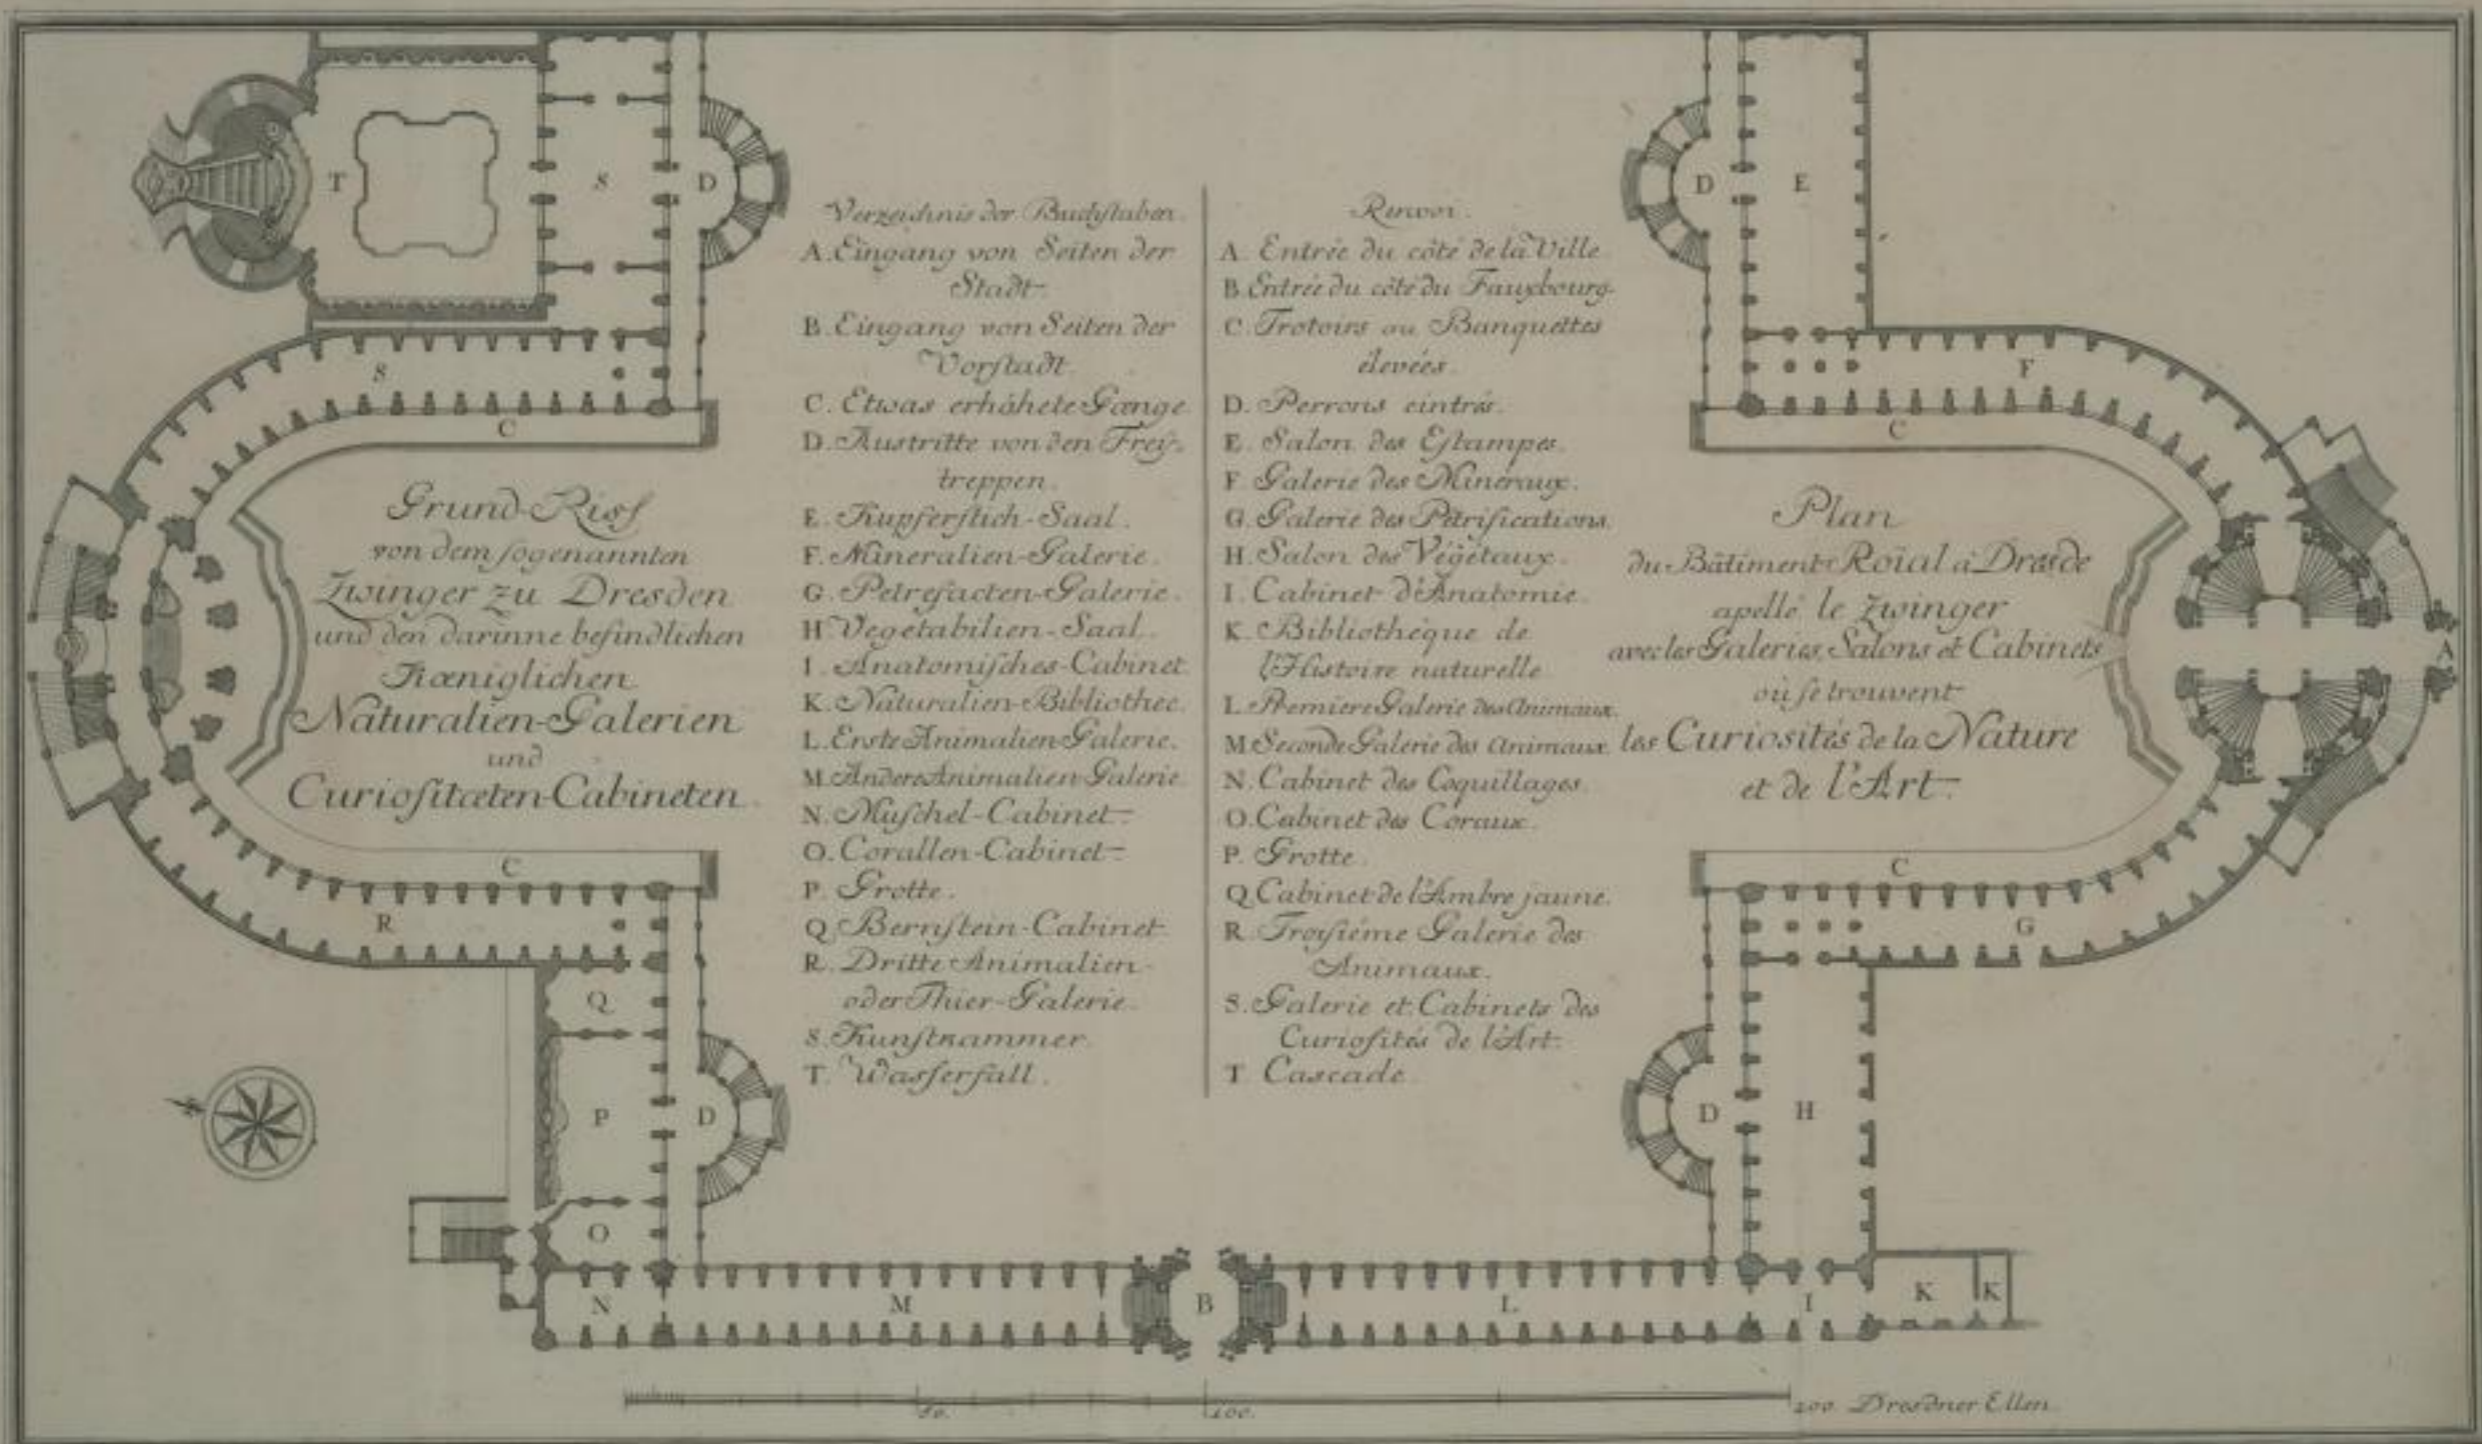 Grund-Riss
von dem sogenannten
Zwinger zu Dresden
und den darinne befindlichen
Kœniglichen
Naturalien-Galerien
und
Curiositæten-Cabineten.
Verzeichnis der Buchstaben.
A. Eingang von Seiten der
Stadt.
B. Eingang von Seiten der
Vorstadt.
C. Etwas erhöhete Gænge
D. Austritte von den Frey-
treppen.
E. Kupferstich-Saal.
F. Mineralien-Galerie.
G. Petrefacten-Galerie.
H. Vegetabilien-Saal.
I. Anatomisches-Cabinet
K. Naturalien-Bibliothec.
L. Erste Animalien-Galerie.
M. Andere Animalien-Galerie
N. Muschel-Cabinet.
O. Corallen-Cabinet.
P. Grotte.
Q. Bernstein-Cabinet
R. Dritte Animalien-
oder Thier-Galerie.
S. Kunstkammer.
T. Wasserfall.
Renvoi.
A. Entrée du côté de la Ville
B. Entrée du côté du Fauxbourg.
C. Trotoirs ou Banquettes
élevées.
D. Perrons
E. Salon des Estampes.
F. Galerie des Mineraux.
G. Galerie des Pétrifications.
H. Salon des Végétaux.
I. Cabinet d'Anatomie.
K. Bibliothéque de
l'Histoire naturelle
L. Premiere Galerie des Animaux.
M. Seconde Galerie des Animaux.
N. Cabinet des Coquillages.
O. Cabinet des Coraux.
P. Grotte.
Q. Cabinet de l'Ambre jaune.
R. Troisiéme Galerie des
Animaux.
S. Galerie et Cabinets des
Curiosités de l'Art.
T. Cascade
Plan
du Bâtiment Roïal à Dresde
apellé le Zwinger
avec les Galeries, Salons et Cabinets
où se trouvent
les Curiosités de la Nature
et de l'Art.
T
S
D
S
C
C
R
Q
P
D
O
N
M
B
L
I
K
K
D
E
F
C
A
C
G
D
H
50.
100.
200. Dresdner Ellen.